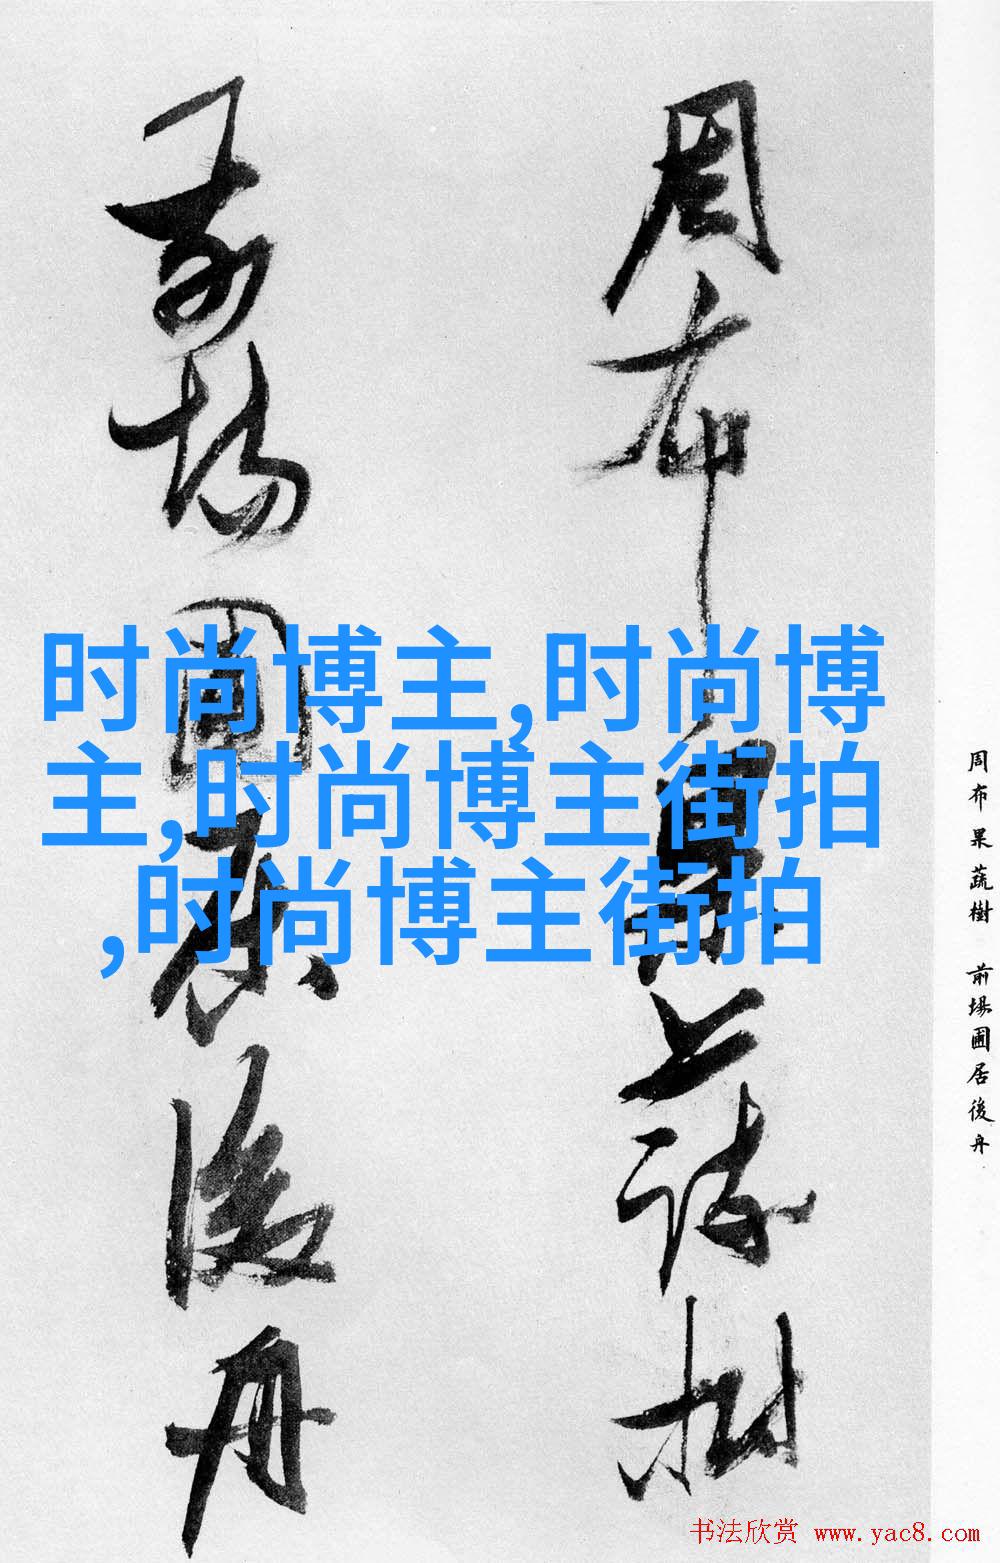 周布果蔬樹
前場圃居後舟
时尚博主,时尚博
主,时尚博主街拍
,时尚博主街拍
周布果蔬樹 前場圃居後舟
书法欣赏 www.yac8.com